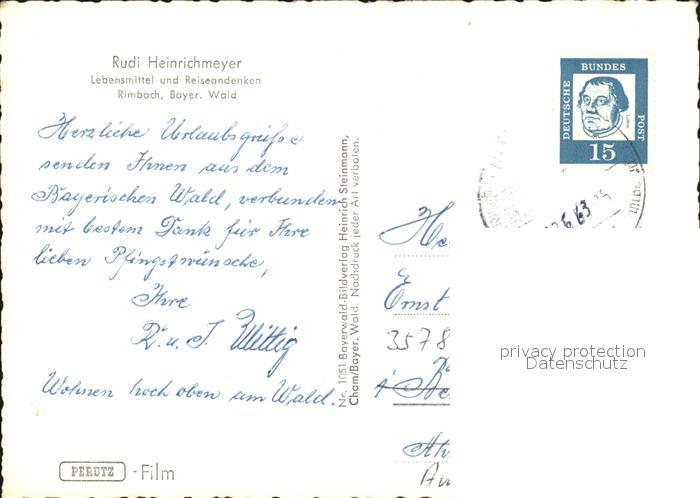 Rudi Heinrichmeyer
Lebensmittel und Reiseandenken
Rimbach, Bayer. Wald
Herzliche Urlaubsgrüße
senden Ihnen aus dem
Bayerischen Wald, verbunden
mit bestem Dank für Ihre
lieben Pfingstwünsche,
Ihre
R. u. J. Wittig
Wohnen hoch oben am Wald.
PERUTZ -Film
Nr. 1051 Bayerwald-Bildverlag Heinrich Steinmann,
Cham/Bayer. Wald. Nachdruck jeder Art verboten.
DEUTSCHE
BUNDES
POST
15
6.63
He
Ernst
3578
privacy protection
Datenschutz